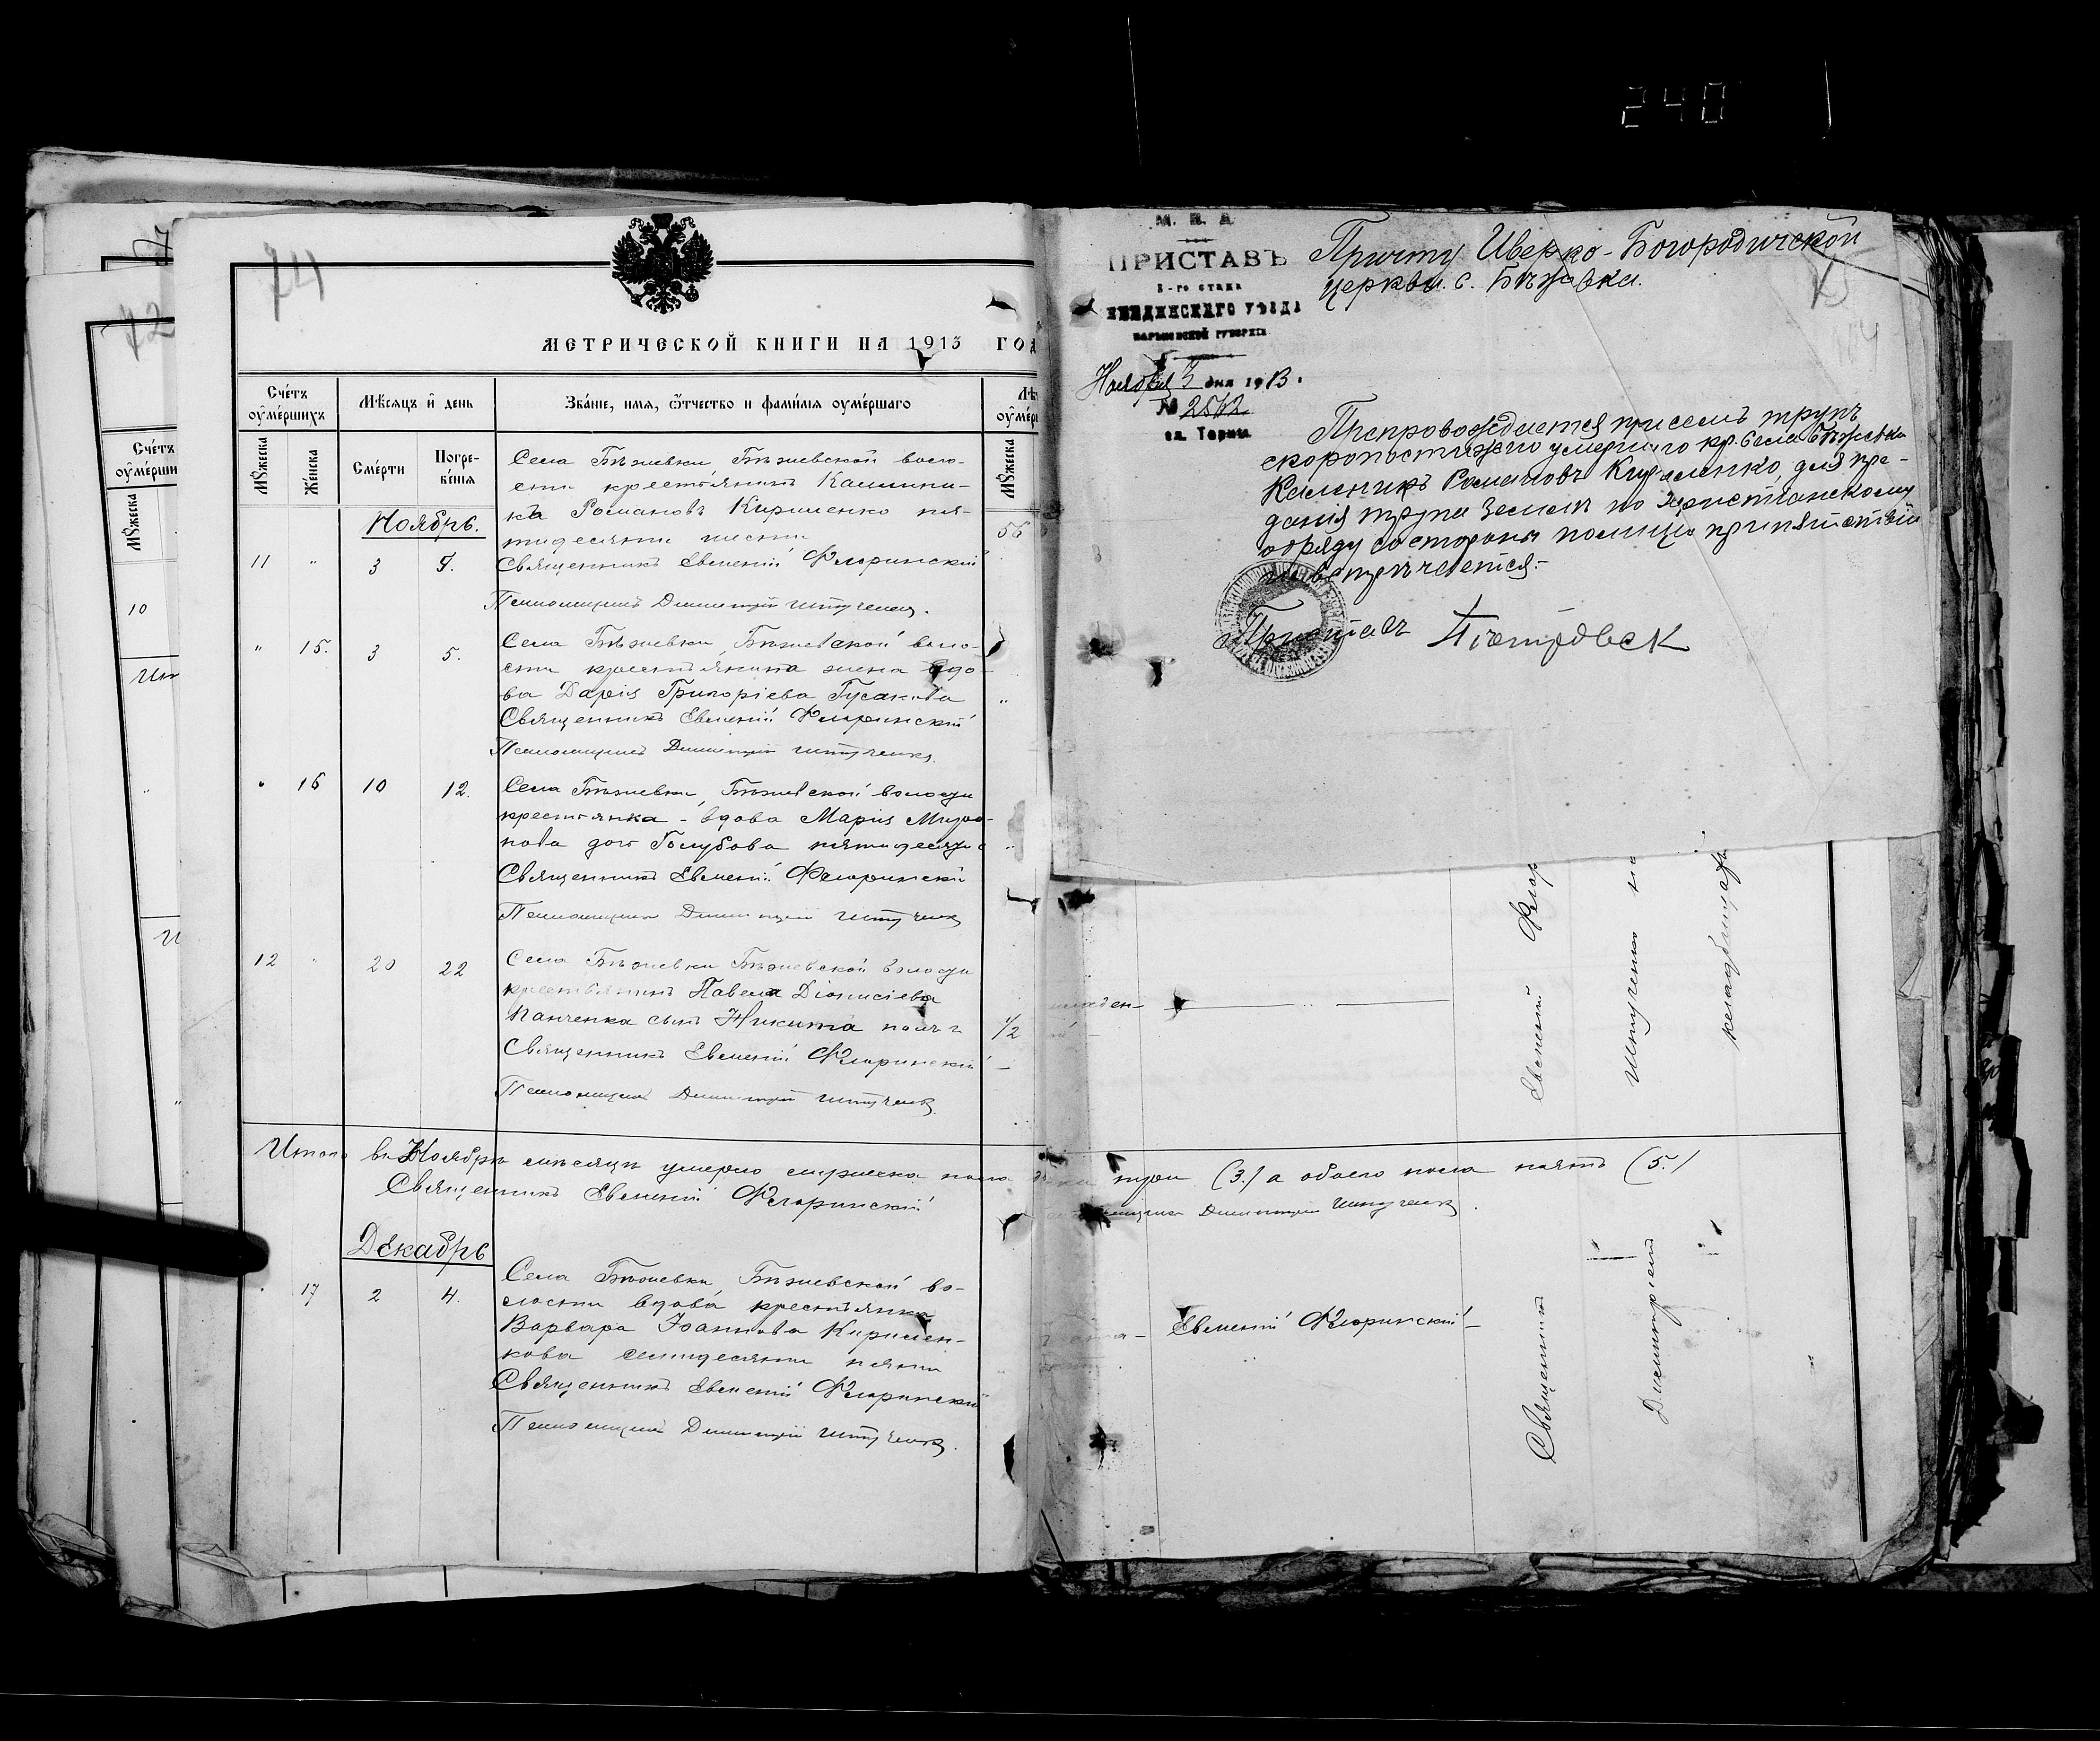 240
74
МЕТРИЧЕСКОЙ КНИГИ НА 1913 ГОД
Счетъ оумершихъ
Мѣсяцъ и день
Званіе, имя, отчество и фамилія оумершаго
Мужеска
Женска
Смерти
Погребенія
Мужеска
Ноябрь.
Села Бѣжевки, Бѣжевской воло-
сти крестьянинъ
Романовъ Кириленко пя-
тидесяти шести
56
11 " 3
Священникъ Евменій Флоринскій
Псаломщикъ Димитрій Штученко.
" 15. 3 5.
Села Бѣжевки, Бѣжевской воло-
сти крестьянина жена вдо-
ва Дарія Григоріева Гусакова
Священникъ Евменій Флоринскій
Псаломщикъ Димитрій Штученко.
" 16 10 12.
Села Бѣжевки, Бѣжевской волости
крестьянка - вдова Марія Миро-
нова Голубова пятидесяти
Священникъ Евменій Флоринскій
Псаломщикъ Димитрій Штученко
12 " 20 22
Села Бѣжевки Бѣжевской волости
крестьянина Павела Діонисіева
Панченка сынъ Никита полъ г
1/2
Священникъ Евменій Флоринскій
Псаломщикъ Димитрій Штученко.
Итого въ Ноябрѣ мѣсяцѣ умерло мужеска пола три (3.) а обоего пола пять (5.)
Священникъ Евменій Флоринскій
Димитрій Штученко.
Декабрь
17 2 4.
Села Бѣжевки, Бѣжевской во-
лости вдова крестьянка
Варвара Іоаннова Кирилен-
кова семидесяти пяти
Священникъ Евменій Флоринскій
Псаломщикъ Димитрій Штученко.
М. В. Д.
ПРИСТАВЪ
3-го стана
ЛЕБЕДИНСКАГО УѢЗДА
ХАРЬКОВСКОЙ ГУБЕРНІИ
Ноября 3 дня 1913.
№ 2562
сл. Терны
Причту Иверко-Богородичской
церкви с. Бѣжевки.
Препровождается при семъ трупъ
скоропостижно умершаго кр. села Бѣжевки
Романовъ Кириленко, для пре-
данія трупа землѣ по христіанскому
обряду со стороны полиціи препятствій
не встрѣчается.-
Приставъ
Евменій
Штученко
Евменій Флоринскій
Священникъ